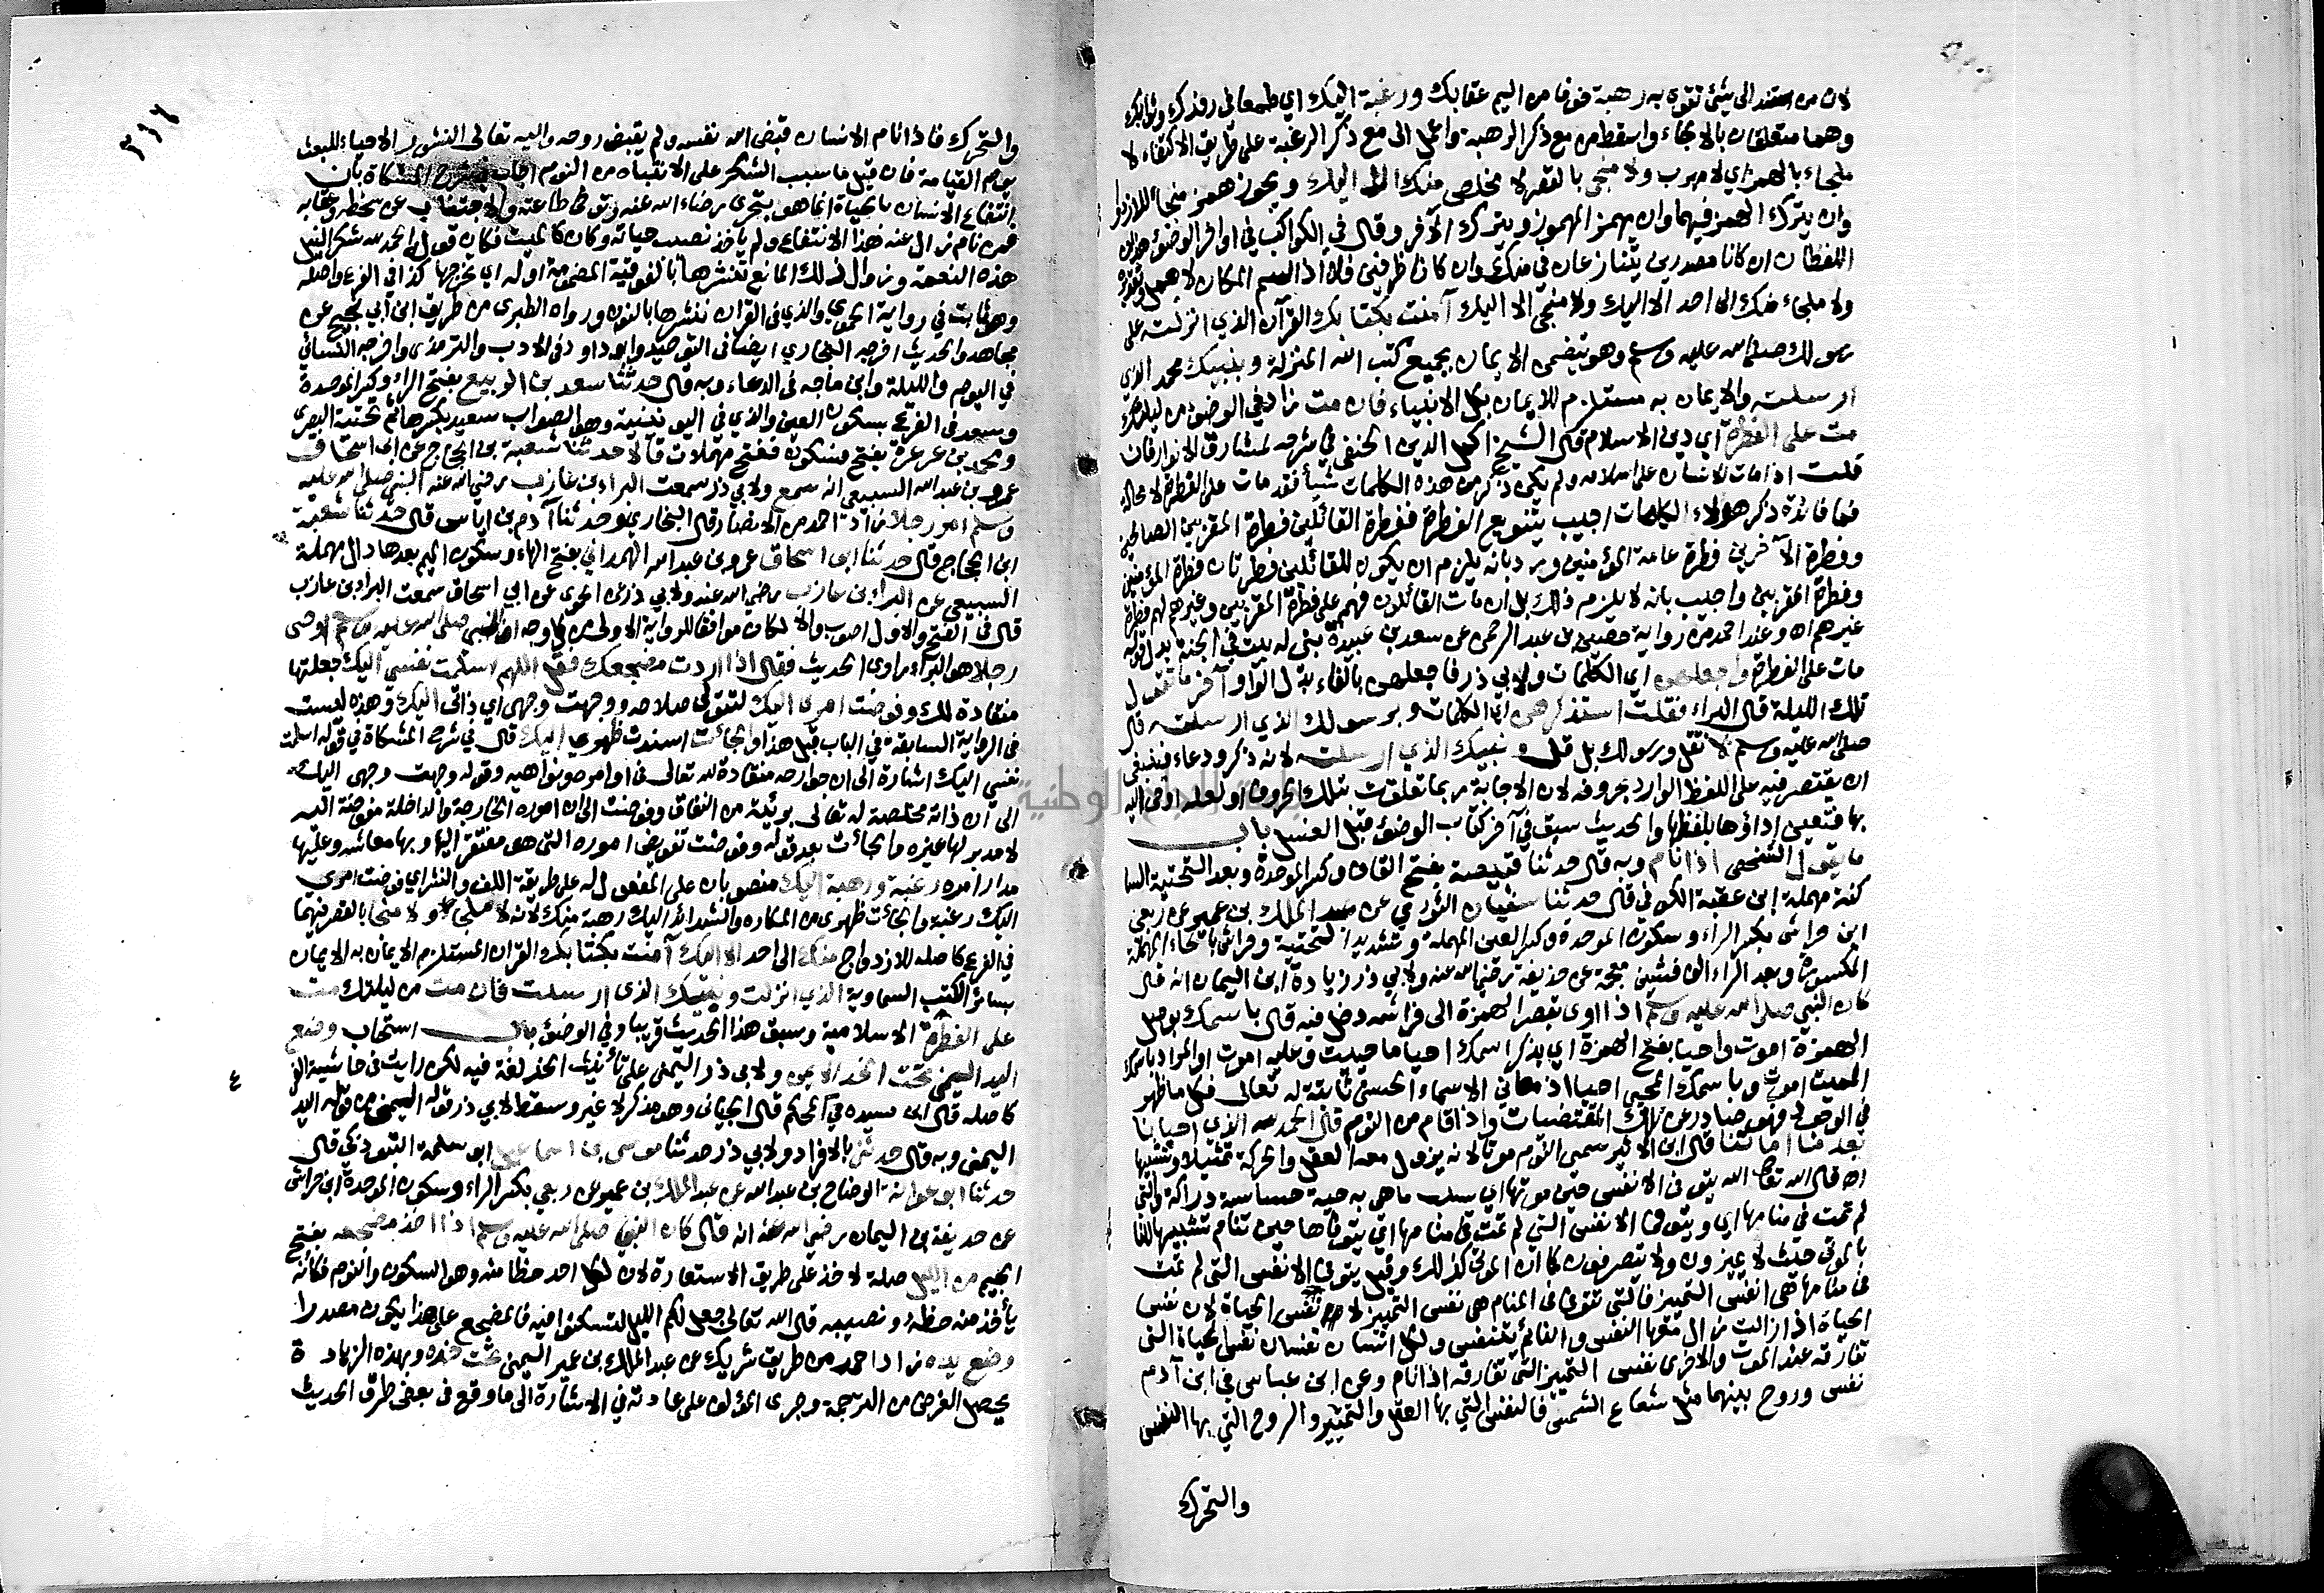 لان من استند الى شئ تقوى به رهبة خوفا من اليم عقابك ورغبة اليك اي طمعا في رفدك وثوابك
وهما متعلقان بالالجاء واسقط من مع ذكر الرهبة واعمل الى مع ذكر الرغبة على طريق الاكتفاء لا
ملجاء بالهمز اي لا مهرب ولا منجى بالقصر لا مخلص منك الا اليك ويجوز همز منجأ للازدواج
وان يترك الهمز فيهما وان يهمز المهموز ويترك الآخر وقال في الكواكب في اواخر الوضوء هذان
اللفظان ان كانا مصدرين يتنازعان في منك وان كانا ظرفين فلا اذ اسم المكان لا يعمل وتقديره
ولا ملجاء منك الى احد الا اليك ولا منجى الا اليك آمنت بكتابك القرآن الذي انزلت على
رسولك صلى الله عليه وسلم وهو يتضمن الايمان بجميع كتب الله المنزلة وبنبيك محمد الذي
ارسلت والايمان به مستلزم للايمان بكل الانبياء فان مت زاد في الوضوء من ليلتك
مت على الفطرة اي دين الاسلام قال الشيخ اكمل الدين الحنفي في شرحه لمشارق الانوار فان
قلت اذا مات الانسان على اسلامه ولم يكن ذكر من هذه الكلمات شيأ فقد مات على الفطرة لا محالة
فما فائدة ذكر هؤلاء الكلمات اجيب بتنويع الفطرة ففطرة القائلين فطرة المقربين الصالحين
وفطرة الآخرين فطرة عامة المؤمنين ورد بانه يلزم ان يكون للقائلين فطرتان فطرة المؤمنين
وفطرة المقربين واجيب بانه لا يلزم ذلك بل ان مات القائلون فهم على فطرة المقربين وغيرهم لهم فطرة
غيرهم اه وعند احمد من رواية حصين بن عبد الرحمن عن سعد بن عبيدة بنى له بيت في الجنة بدل قوله
مات على الفطرة واجعلهن اي الكلمات ولابي ذر فاجعلهن بالفاء بدل الواو آخر ما تقول
تلك الليلة قال البراء فقلت استذكرهن اي الكلمات وبرسولك الذي ارسلت قال
صلى الله عليه وسلم لا تقل ورسولك بل قل وبنبيك الذي ارسلت لانه ذكر ودعاء فينبغي
ان يقتصر فيه على اللفظ الوارد بحروفه لان الاجابة ربما تعلقت بتلك الحروف او لعله اوحى اليه
بها فتعين اداؤها بلفظها والحديث سبق في آخر كتاب الوضوء قبل الغسل باب
ما يقول الشخص اذا نام وبه قال حدثنا قبيصة بفتح القاف وكسر الموحدة وبعد التحتية السا
كنة مهملة ابن عقبة الكوفي قال حدثنا سفيان الثوري عن عبد الملك بن عمير عن ربعي
ابن حراش بكسر الراء وسكون الموحدة وكسر العين المهملة وتشديد التحتية وحراش بالحاء المهملة
المكسورة وبعد الراء الف فشين معجمة عن حذيفة رضي الله عنه ولابي ذر زيادة ابن اليمان انه قال
كان النبي صلى الله عليه وسلم اذا اوى بقصر الهمزة الى فراشه دخل فيه قال باسمك بوصل
الهمزة اموت واحيا بفتح الهمزة اي بذكر اسمك احيا ما حييت وعليه اموت او المراد باسمك
المميت اموت وباسمك المحيي احيا اذ معاني الاسماء الحسنى ثابتة له تعالى فكل ما ظهر
في الوجود فهو صادر عن تلك المقتضيات واذا قام من النوم قال الحمد لله الذي احيانا
بعد منا اماتنا قال ابن الاثير سمي النوم موتا لانه يزول معه العقل والحركة تمثيلا وتشبيها
اه قال الله تعالى الله يتوفى الانفس حين موتها اي سلب ما هي به حية حساسة دراكة والتي
لم تمت في منامها اي ويتوفى الانفس التي لم تمت في منامها اي يتوفاها حين تنام تشبيها للنا
بالموتى حيث لا يميزون ولا يتصرفون كما ان الموتى كذلك وقيل يتوفى الانفس التي لم تمت
في منامها هي انفس التمييز فالتي تتوفى في المنام هي نفس التمييز لا نفس الحياة لان نفس
الحياة اذا زالت زال معها النفس والنائم يتنفس ولكل انسان نفسان نفس الحياة التي
تفارقه عند الموت والاخرى نفس التمييز التي تفارقه اذا نام وعن ابن عباس في ابن آدم
نفس وروح بينهما مثل شعاع الشمس فالنفس التي بها العقل والتمييز والروح التي بها النفس
والتحرك
٣١٦
والتحرك فاذا نام الانسان قبض الله نفسه ولم يقبض روحه واليه تعالى النشور الاحياء للبعث
يوم القيامة فان قيل ما سبب الشكر على الانتباه من النوم اجاب في شرح المشكاة بان
انتفاع الانسان بالحياة انما هو بتحرى رضاء الله عنه وتوخى طاعته والاجتناب عن سخطه وعقابه
فمن نام زال عنه هذا الانتفاع ولم يأخذ نصيب حياته وكان كالميت فكان قوله الحمد لله شكرا لنيل
هذه النعمة وزوال ذلك المانع تنشرها بالفوقية المضمومة اوله اي تخرجها كذا في الفرع واصله
وهو ثابت في رواية الحموي والذي في القران ننشزها بالنون ورواه الطبرى من طريق ابن ابي نجيح عن
مجاهد والحديث اخرجه البخاري ايضا في التوحيد وابو داود في الادب والترمذى واخرجه النسائي
في اليوم والليلة وابن ماجه في الدعاء وبه قال حدثنا سعد بن الربيع بفتح الراء وكسر الموحدة
وسعد في الفرع بسكون العين والذي في اليونينية وهو الصواب سعيد بكسرها ثم تحتية البصرى
ومحمد بن عرعرة بفتح فسكون ففتح مهملات قالا حدثنا شعبة بن الحجاج عن ابي اسحاق
عمرو بن عبد الله السبيعي انه سمع ولابي ذر سمعت البراء بن عازب رضي الله عنه ان النبي صلى الله عليه
وسلم امر رجلا زاد احمد من الانصار قال البخاري وحدثنا آدم بن اياس قال حدثنا شعبة
ابن الحجاج قال حدثنا ابو اسحاق عمرو بن عبد الله الهمداني بفتح الهاء وسكون الميم بعدها دال مهملة
السبيعي عن البراء بن عازب رضي الله عنه ولابي ذر عن الحموي عن ابي اسحاق سمعت البراء بن عازب
قال في الفتح والاول اصوب والا لكان موافقا للرواية الاولى من كل وجه ان النبي صلى الله عليه وسلم اوصى
رجلا هو البراء راوى الحديث فقال اذا اردت مضجعك فقل اللهم اسلمت نفسي اليك جعلتها
منقادة لك وفوضت امرى اليك لتتولى صلاحه ووجهت وجهى اي ذاتي اليك وهذه ليست
في الرواية السابقة في الباب قبل هذا والجأت اسندت ظهرى اليك قال في شرح المشكاة في قوله اسلمت
نفسي اليك اشارة الى ان جوارحه منقادة لله تعالى في اوامره ونواهيه وقوله وجهت وجهى اليك
الى ان ذاته مخلصة له تعالى بريئة من النفاق وفوضت الى ان اموره الخارجة والداخلة مفوضة اليه
لا مدبر لها غيره والجأت بعد قوله وفوضت تفويض اموره التي هو مفتقر اليها وبها معاشه وعليها
مدار امره رغبة ورهبة اليك منصوبان على المفعول له على طريقة اللف والنشر اي فوضت امرى
اليك رغبة والجأت ظهرى من المكاره والشدائد اليك رهبة منك لانه لا ملجأ ولا منجا بالقصر فيهما
في الفرع كاصله للازدواج منك الى احد الا اليك آمنت بكتابك القران المستلزم الايمان به الايمان
بسائر الكتب السماوية الذي انزلت ونبيك الذى ارسلت فان مت من ليلتك مت
على الفطرة الاسلامية وسبق هذا الحديث قريبا وفي الوضوء باب استحباب وضع
اليد اليمنى تحت الخد الايمن ولابي ذر اليمنى على تأنيث الخد لغة فيه لكن رايت في حاشية الفر
كاصله قال ابن سيده في المحكم قال اللحياني وهو مذكر لا غير وسقط لابي ذر قوله اليمنى من قوله اليد
اليمنى وبه قال حدثني بالافراد ولابي ذر حدثنا موسى بن اسماعيل ابو سلمة التبوذكي قال
حدثنا ابو عوانة الوضاح بن عبد الله عن عبد الملك بن عمير عن ربعي بكسر الراء وسكون الموحدة ابن حراش
عن حذيفة بن اليمان رضي الله عنه انه قال كان النبي صلى الله عليه وسلم اذا اخذ مضجعه بفتح
الجيم من الليل صلة لاخذ على طريق الاستعارة لان لكل احد حظا منه وهو السكون والنوم فكأنه
يأخذ منه حظه ونصيبه قال الله تعالى جعل لكم الليل لتسكنوا فيه فالمضجع على هذا يكون مصدرا
وضع يده زاد احمد من طريق شريك عن عبد الملك بن عمير اليمنى تحت خده وبهذه الزيادة
يحصل الغرض من الترجمة وجرى المؤلف على عادته في الاشارة الى ما وقع في بعض طرق الحديث